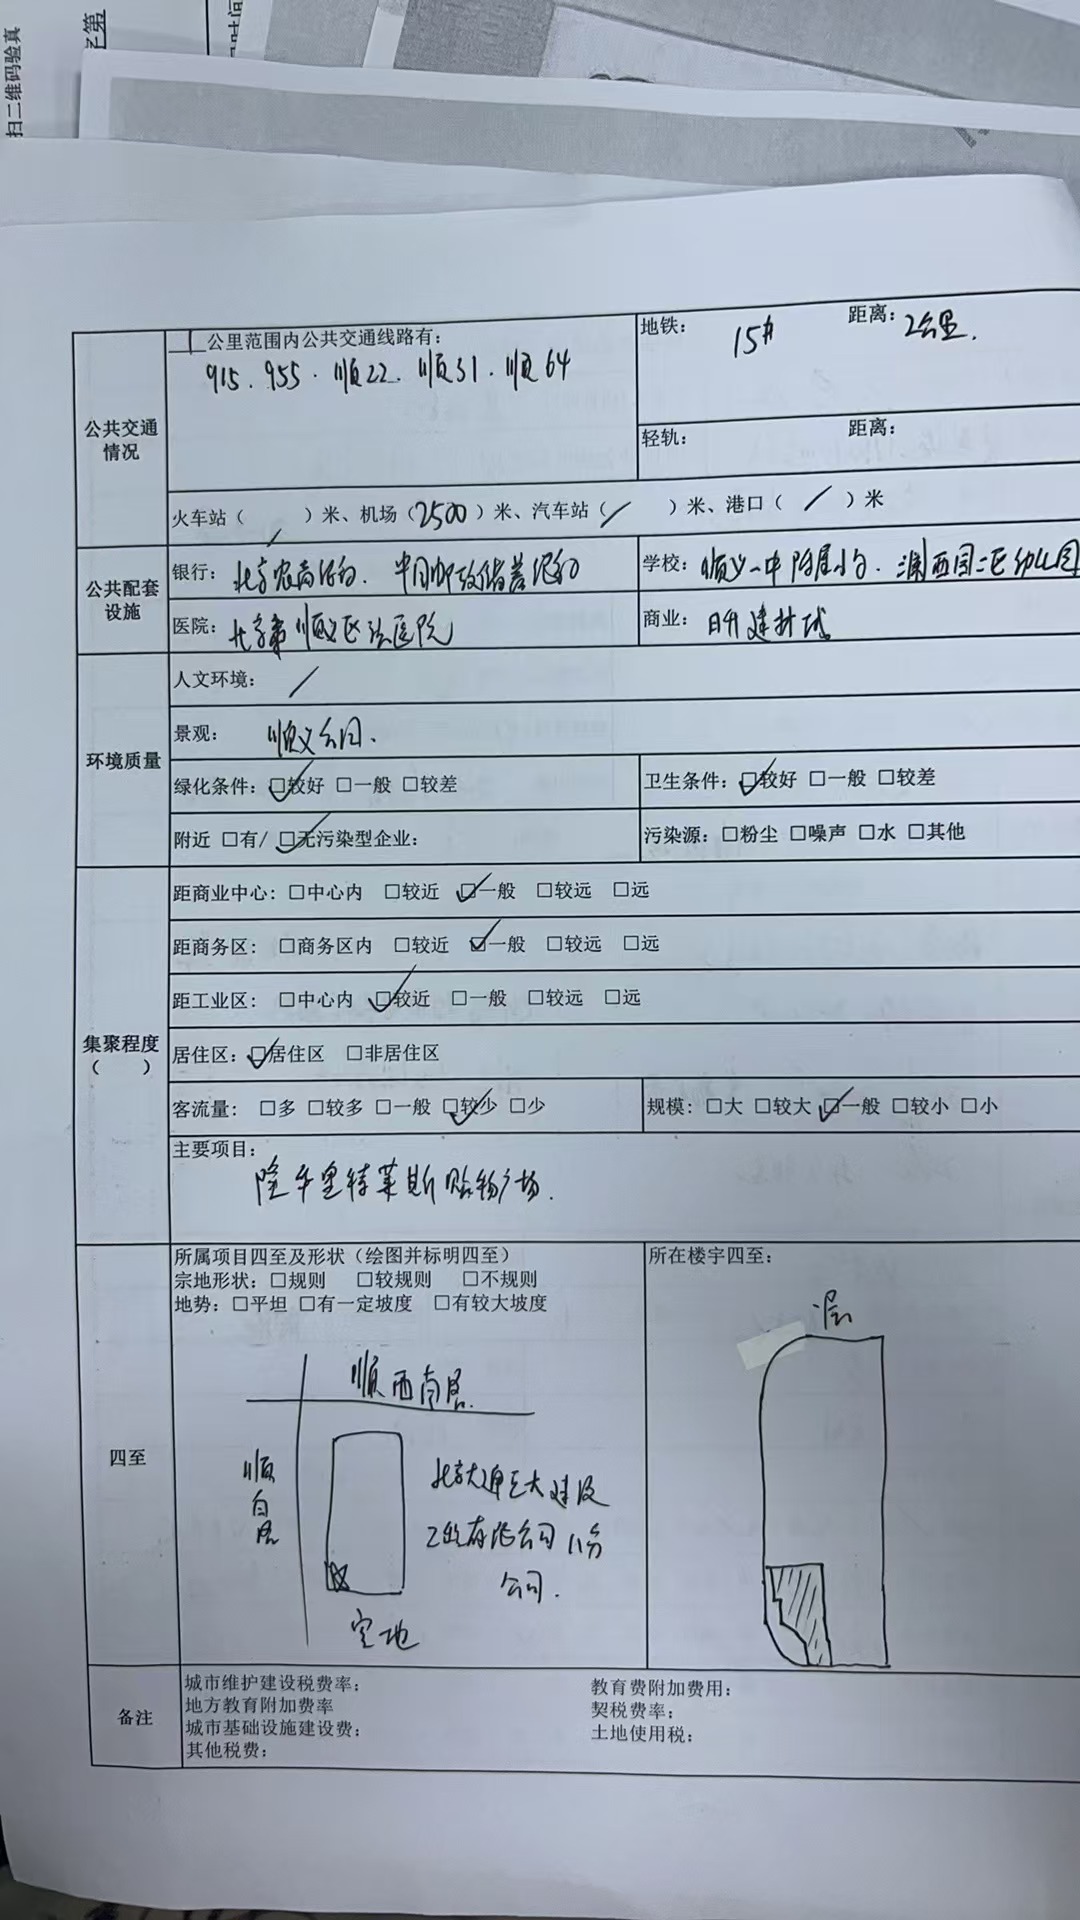 扫二维码验真
第
时间
1公里范围内公共交通线路有:
915.955.顺22.顺31.顺64
地铁: 15# 距离: 2公里.
轻轨: 距离:
公共交通
情况
火车站( / )米、机场(2500)米、汽车站( / )米、港口( / )米
公共配套
设施
银行: 北京农商银行. 中国邮政储蓄银行
学校: 顺义一中附属小学. 西园二区幼儿园
医院: 北京市顺义区 医院
商业: 建材城
环境质量
人文环境: /
景观: 顺义公园.
绿化条件: ☑较好 □一般 □较差
卫生条件: ☑较好 □一般 □较差
附近 □有/ ☑无污染型企业:
污染源: □粉尘 □噪声 □水 □其他
集聚程度
( )
距商业中心: □中心内 □较近 ☑一般 □较远 □远
距商务区: □商务区内 □较近 ☑一般 □较远 □远
距工业区: □中心内 ☑较近 □一般 □较远 □远
居住区: ☑居住区 □非居住区
客流量: □多 □较多 □一般 ☑较少 □少
规模: □大 □较大 ☑一般 □较小 □小
主要项目:
隆华里特莱斯购物广场.
四至
所属项目四至及形状(绘图并标明四至)
宗地形状: □规则 □较规则 □不规则
地势: □平坦 □有一定坡度 □有较大坡度
顺西南路.
顺
白
路
北京 建设
工程有限公司 分
公司.
空地
所在楼宇四至:
一层
备注
城市维护建设税费率:
教育费附加费用:
地方教育附加费率
契税费率:
城市基础设施建设费:
土地使用税:
其他税费: